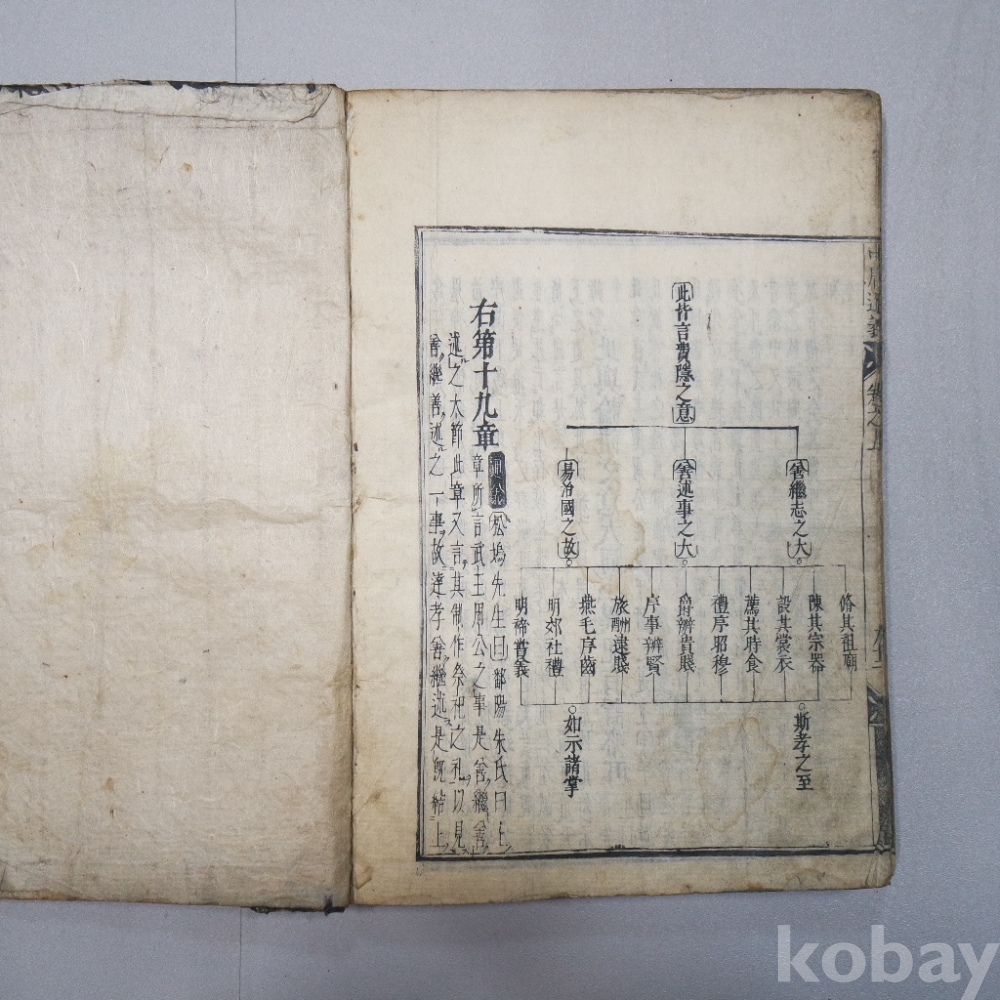 中庸通義
卷之五
此皆言費隱之意
善繼志之大
善述事之大
易治國之故
脩其祖廟
陳其宗器
設其裳衣
薦其時食
禮序昭穆
爵辨貴賤
序事辨賢
旅酬逮賤
燕毛序齒
明郊社禮
明禘嘗義
斯孝之至
如示諸掌
右第十九章
松塢先生曰鄱陽朱氏曰上
章所言武王周公之事是善繼善
述之大節此章又言其制作祭祀之礼以見
善繼善述之一事故達孝善繼述是既結上
kobay